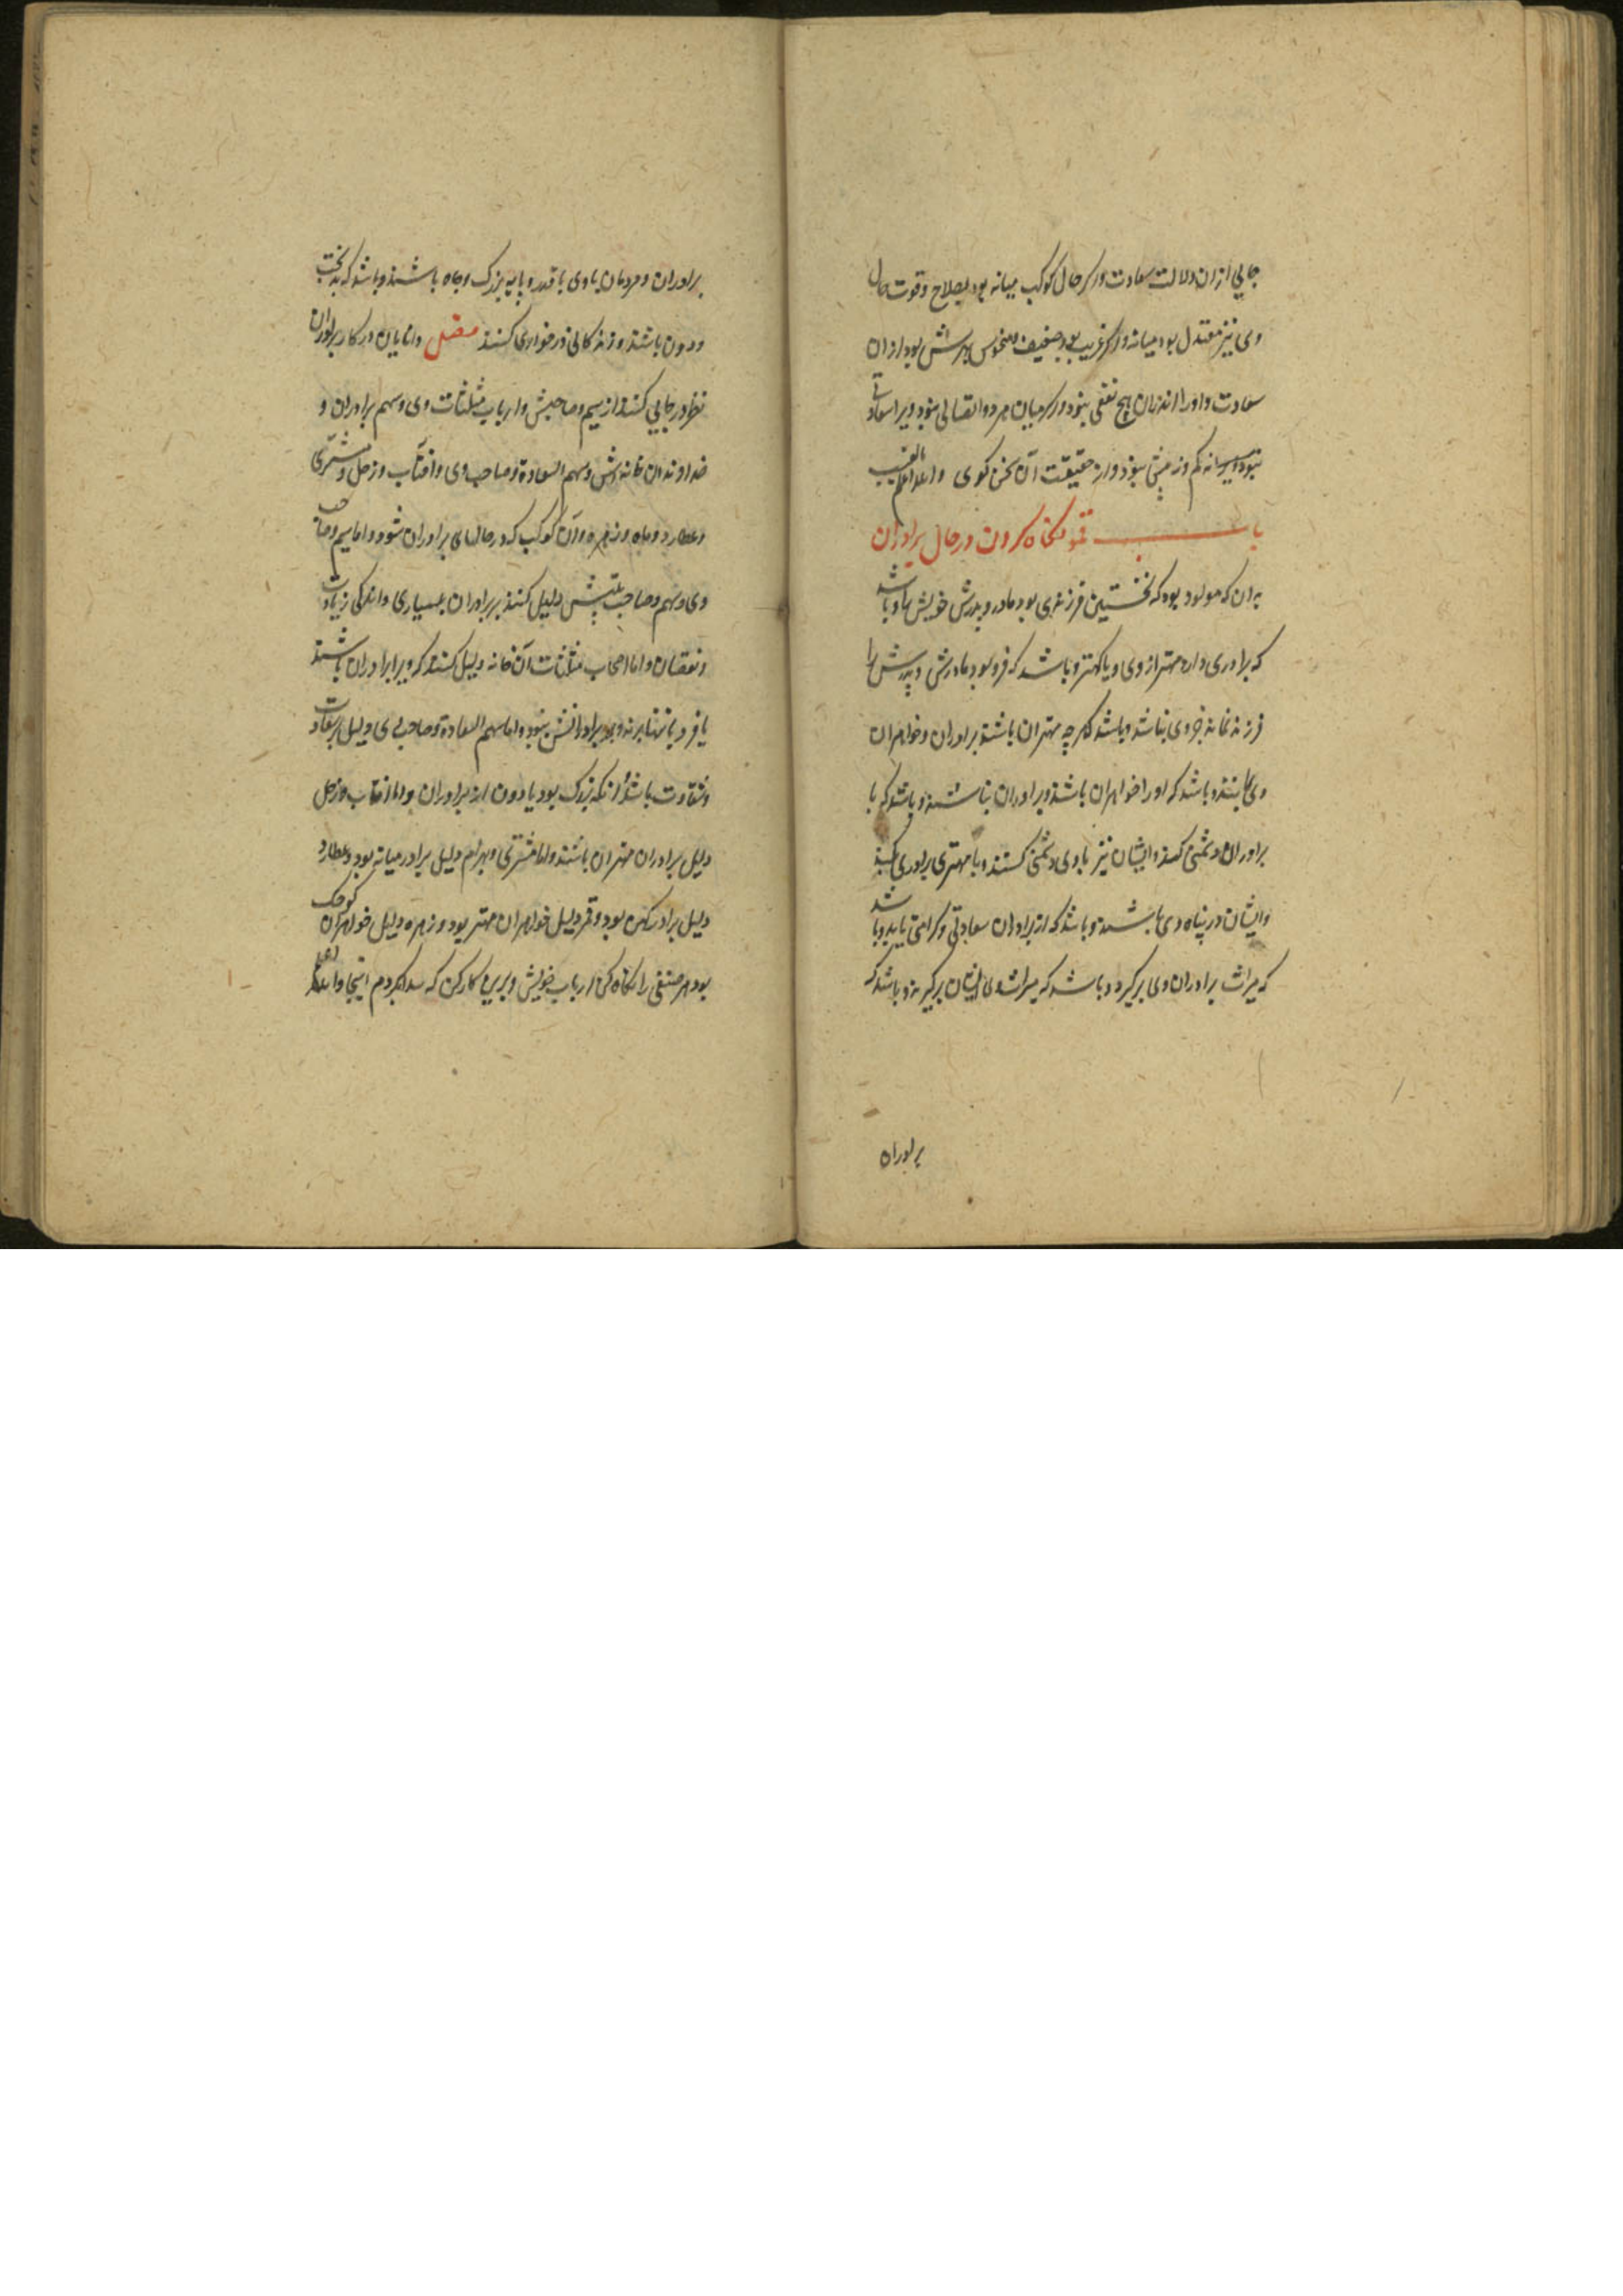 جایی ازان دلالت سعادت واکر حال کوکب میانه بود بصلاح وقوت حال
وی نیز معتدل بود میانه واکر غریب بود ضعیف ومنحوس بهرش بود ازان
سعادت واورا ازان هیچ نفعی نبود واکر میان هر دو اتصالی نبود ویرا سعادتی
نبود نه کم ونه بیش نبود واز حقیقت آن سخن کوی والله اعلم بالغیب
باب نکاه کردن در حال برادران
بدان که مولود بود که نخستین فرزندی بود مادر وپدرش خویش را وباشد
که برادری دارد مهتر از وی ویا کهتر وباشد که فرد بود مادرش وپدرش را
فرزند نماند جز وی نباشد وباشد که هر چه مهتران باشند برادران وخواهران
وی را وباشد که اورا خواهران باشند وبرادران نباشند وباشد که با
برادران دشمنی کند وایشان نیز باوی دشمنی کنند وبا مهتری برادری کنند
وایشان در پناه وی باشند وباشد که از برادران سعادتی وکرامتی یابد وباشد
که میراث برادران وی برکیرد وباشد که میراث وی ایشان برکیرند وباشد که
برادران
برادران ومردمان باوی باقدر وپایه بزرک وجاه باشند وباشد که بدبخت
ودون باشند وزندکانی در خواری کنند فصل دانایان در کار برادران
نظر در جایی کنند از سیم وصاحبش وارباب مثلثات وی وسهم برادران و
خداوندان خانه اش وسهم السعادة وصاحب وی وافتاب وزحل ومشتری
وعطارد وماه وزهره وآن کوکب که در حالهای برادران شود واما سیم وصاحب
وی وسهم وصاحب بیتش دلیل کنند بر برادران بسیاری واندکی زیادت
ونقصان واما اصحاب مثلثات آن خانه دلیل کنند که ویرا برادران باشند
یا فرد یا تنها بود وبرادرانش نبود واما سهم السعادة وصاحب وی دلیل بر سعادت
وشقاوت باشد آنکه بزرک بود یا دون از برادران واما افتاب وزحل
دلیل برادران مهتران باشند واما مشتری وبهرام دلیل برادر میانه بود وعطارد
دلیل برادر کهین بود وقمر دلیل خواهران مهتر بود وزهره دلیل خواهران کوچک
بود هر صنفی را نکاه کن ارباب خویش وبرین کار کن که پیدا کردم اینجا والله اعلم